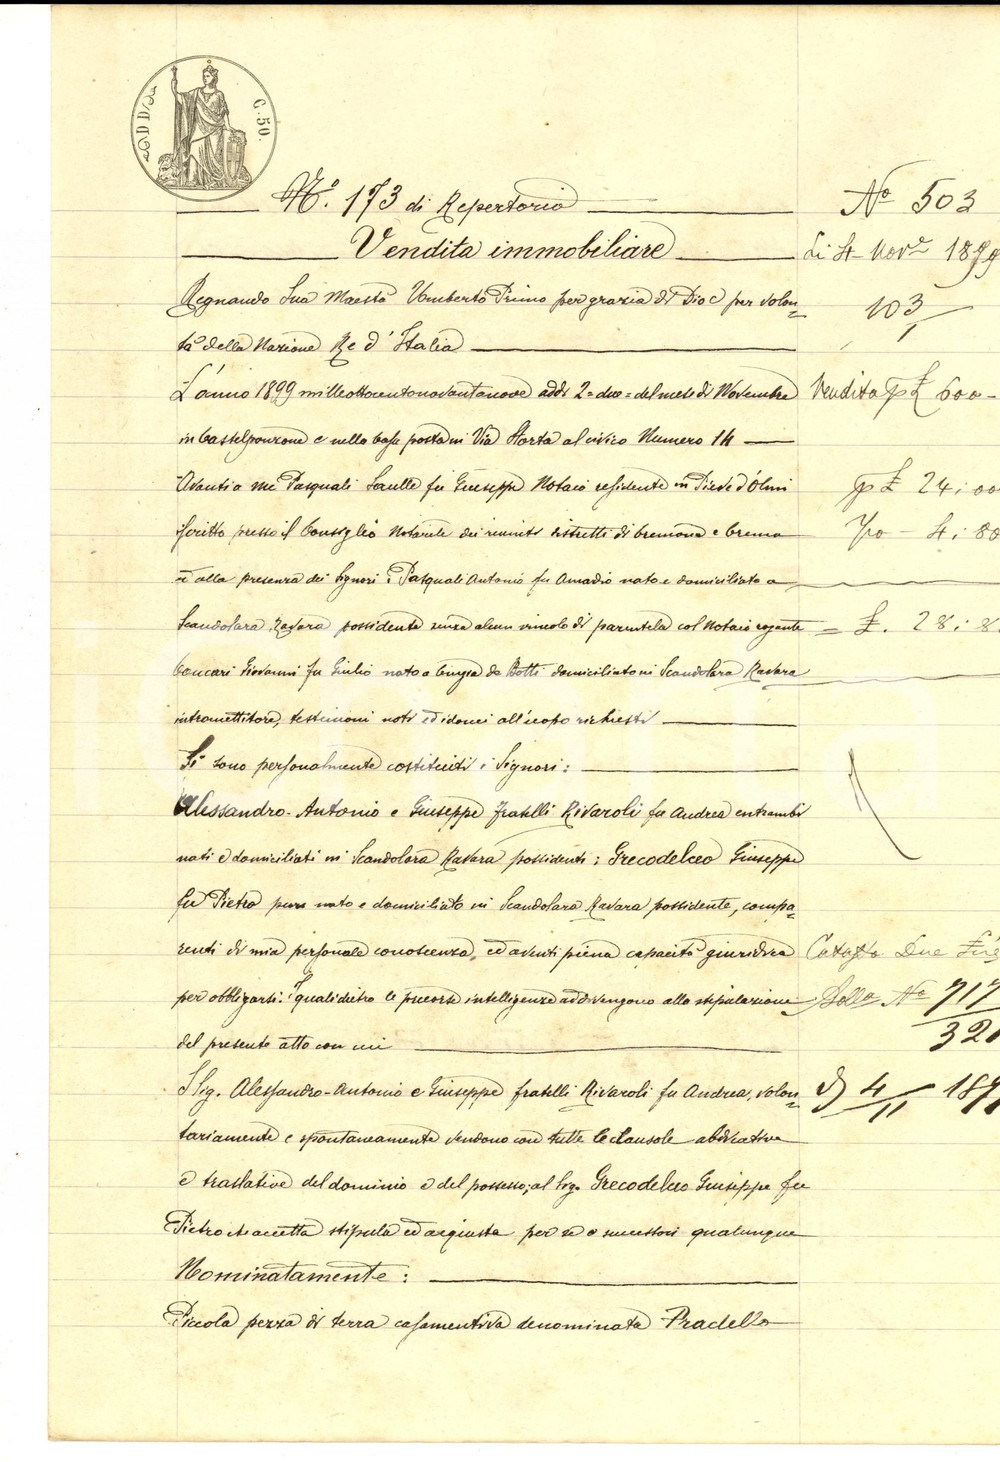 C. 50.
N.º 173 di Repertorio
Vendita immobiliare
Regnando Sua Maestà Umberto Primo per grazia di Dio e per volon=
tà della Nazione Re d'Italia
L'anno 1899 milleottocentonovantanove addì 2= due = del mese di Novembre
in Castelponzone e nella Casa posta in Via Storta al civico Numero 14
Avanti a me Pasquali Sculle fu Giuseppe Notaio residente in Pieve d'Olmi
iscritto presso il Consiglio Notarile dei riuniti distretti di Cremona e Crema
e alla presenza dei Signori: Pasquali Antonio fu Amadio nato e domiciliato a
Scandolara Ravara possidente senza alcun vincolo di parentela col Notaio rogante
Concari Giovanni fu Giulio nato a Cingia de Botti domiciliato in Scandolara Ravara
intromettitore, testimoni noti ed idonei all'uopo richiesti
Si sono personalmente costituiti i Signori:
Alessandro-Antonio e Giuseppe fratelli Rivaroli fu Andrea entrambi
nati e domiciliati in Scandolara Ravara possidenti; Grecodelceo Giuseppe
fu Pietro pure nato e domiciliato in Scandolara Ravara possidente, compa=
renti di mia personale conoscenza, ed aventi piena capacità giuridica
per obbligarsi. I quali dietro le precorse intelligenze addivengono alla stipulazione
del presente atto con cui
I Sig. Alessandro-Antonio e Giuseppe fratelli Rivaroli fu Andrea, volon=
tariamente e spontaneamente vendono con tutte le clausole abdicative
e traslative del dominio e del possesso, al Sig. Grecodelceo Giuseppe fu
Pietro che accetta stipula ed acquista per sè e successori qualunque
Nominatamente:
Piccola pezza di terra casamentiva denominata Pradello
Nº 503
Li 4 Nov.e 1899
103
Vendita p £ 600 -
p £ 24 ; 00
4 ; 80
= £. 28 ; 8
Catasto Due Lire
Bolla Nº 717
320
4/11 189